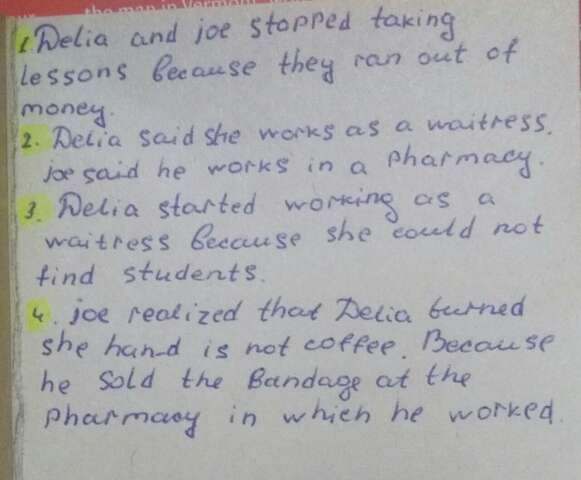 the man in Vermont
1. Delia and joe stopped taking
lessons because they ran out of
money.
2. Delia said she works as a waitress.
joe said he works in a pharmacy.
3. Delia started working as a
waitress because she could not
find students.
4. joe realized that Delia burned
she hand is not coffee. Because
he sold the Bandage at the
pharmacy in which he worked.